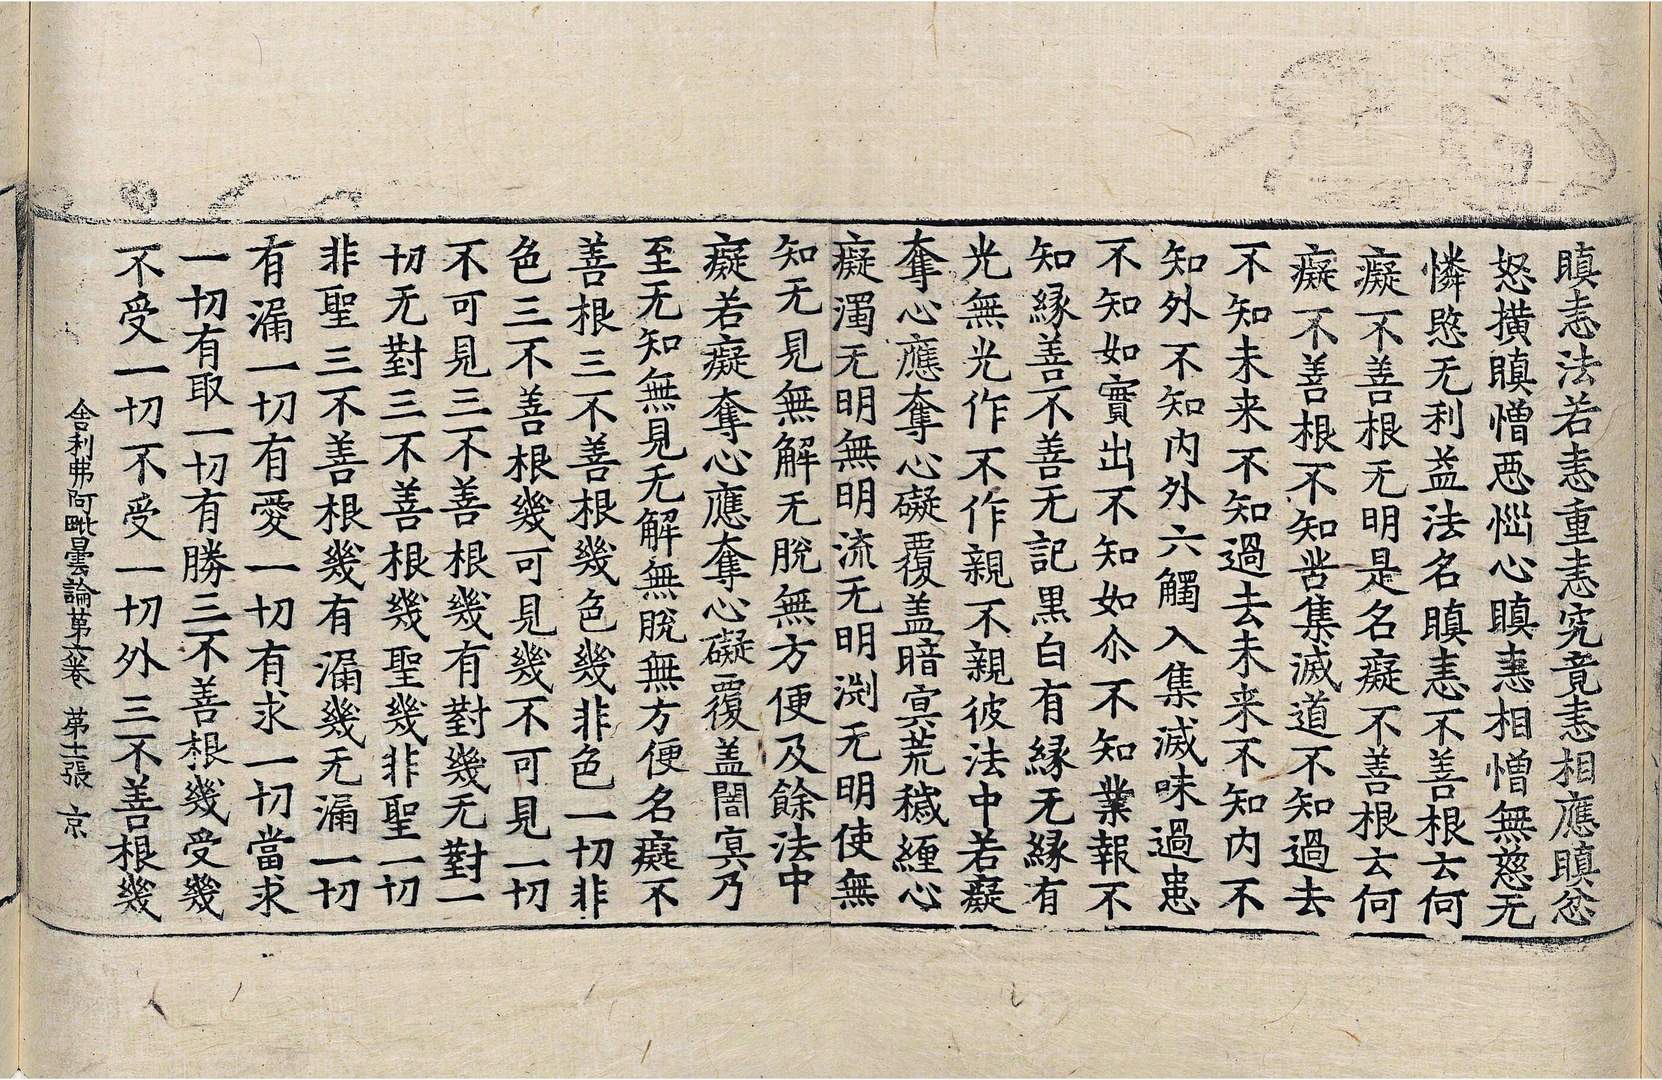 瞋恚法若恚重恚究竟恚相應瞋忿
怒橫瞋憎惡惱心瞋恚相憎無慈无
憐愍无利益法名瞋恚不善根云何
癡不善根无明是名癡不善根云何
癡不善根不知苦集滅道不知過去
不知未来不知過去未来不知内不
知外不知内外六觸入集滅味過患
不知如實出不知如尒不知業報不
知緣善不善无記黒白有緣无緣有
光無光作不作親不親彼法中若癡
奪心應奪心礙覆盖暗冥荒穢纏心
癡濁无明無明流无明渕无明使無
知无見無解无脫無方便及餘法中
癡若癡奪心應奪心礙覆盖闇冥乃
至无知無見无解無脫無方便名癡不
善根三不善根幾色幾非色一切非
色三不善根幾可見幾不可見一切
不可見三不善根幾有對幾无對一
切无對三不善根幾聖幾非聖一切
非聖三不善根幾有漏幾无漏一切
有漏一切有愛一切有求一切當求
一切有取一切有勝三不善根幾受幾
不受一切不受一切外三不善根幾
舍利弗阿毗曇論第六卷　第十二張　京